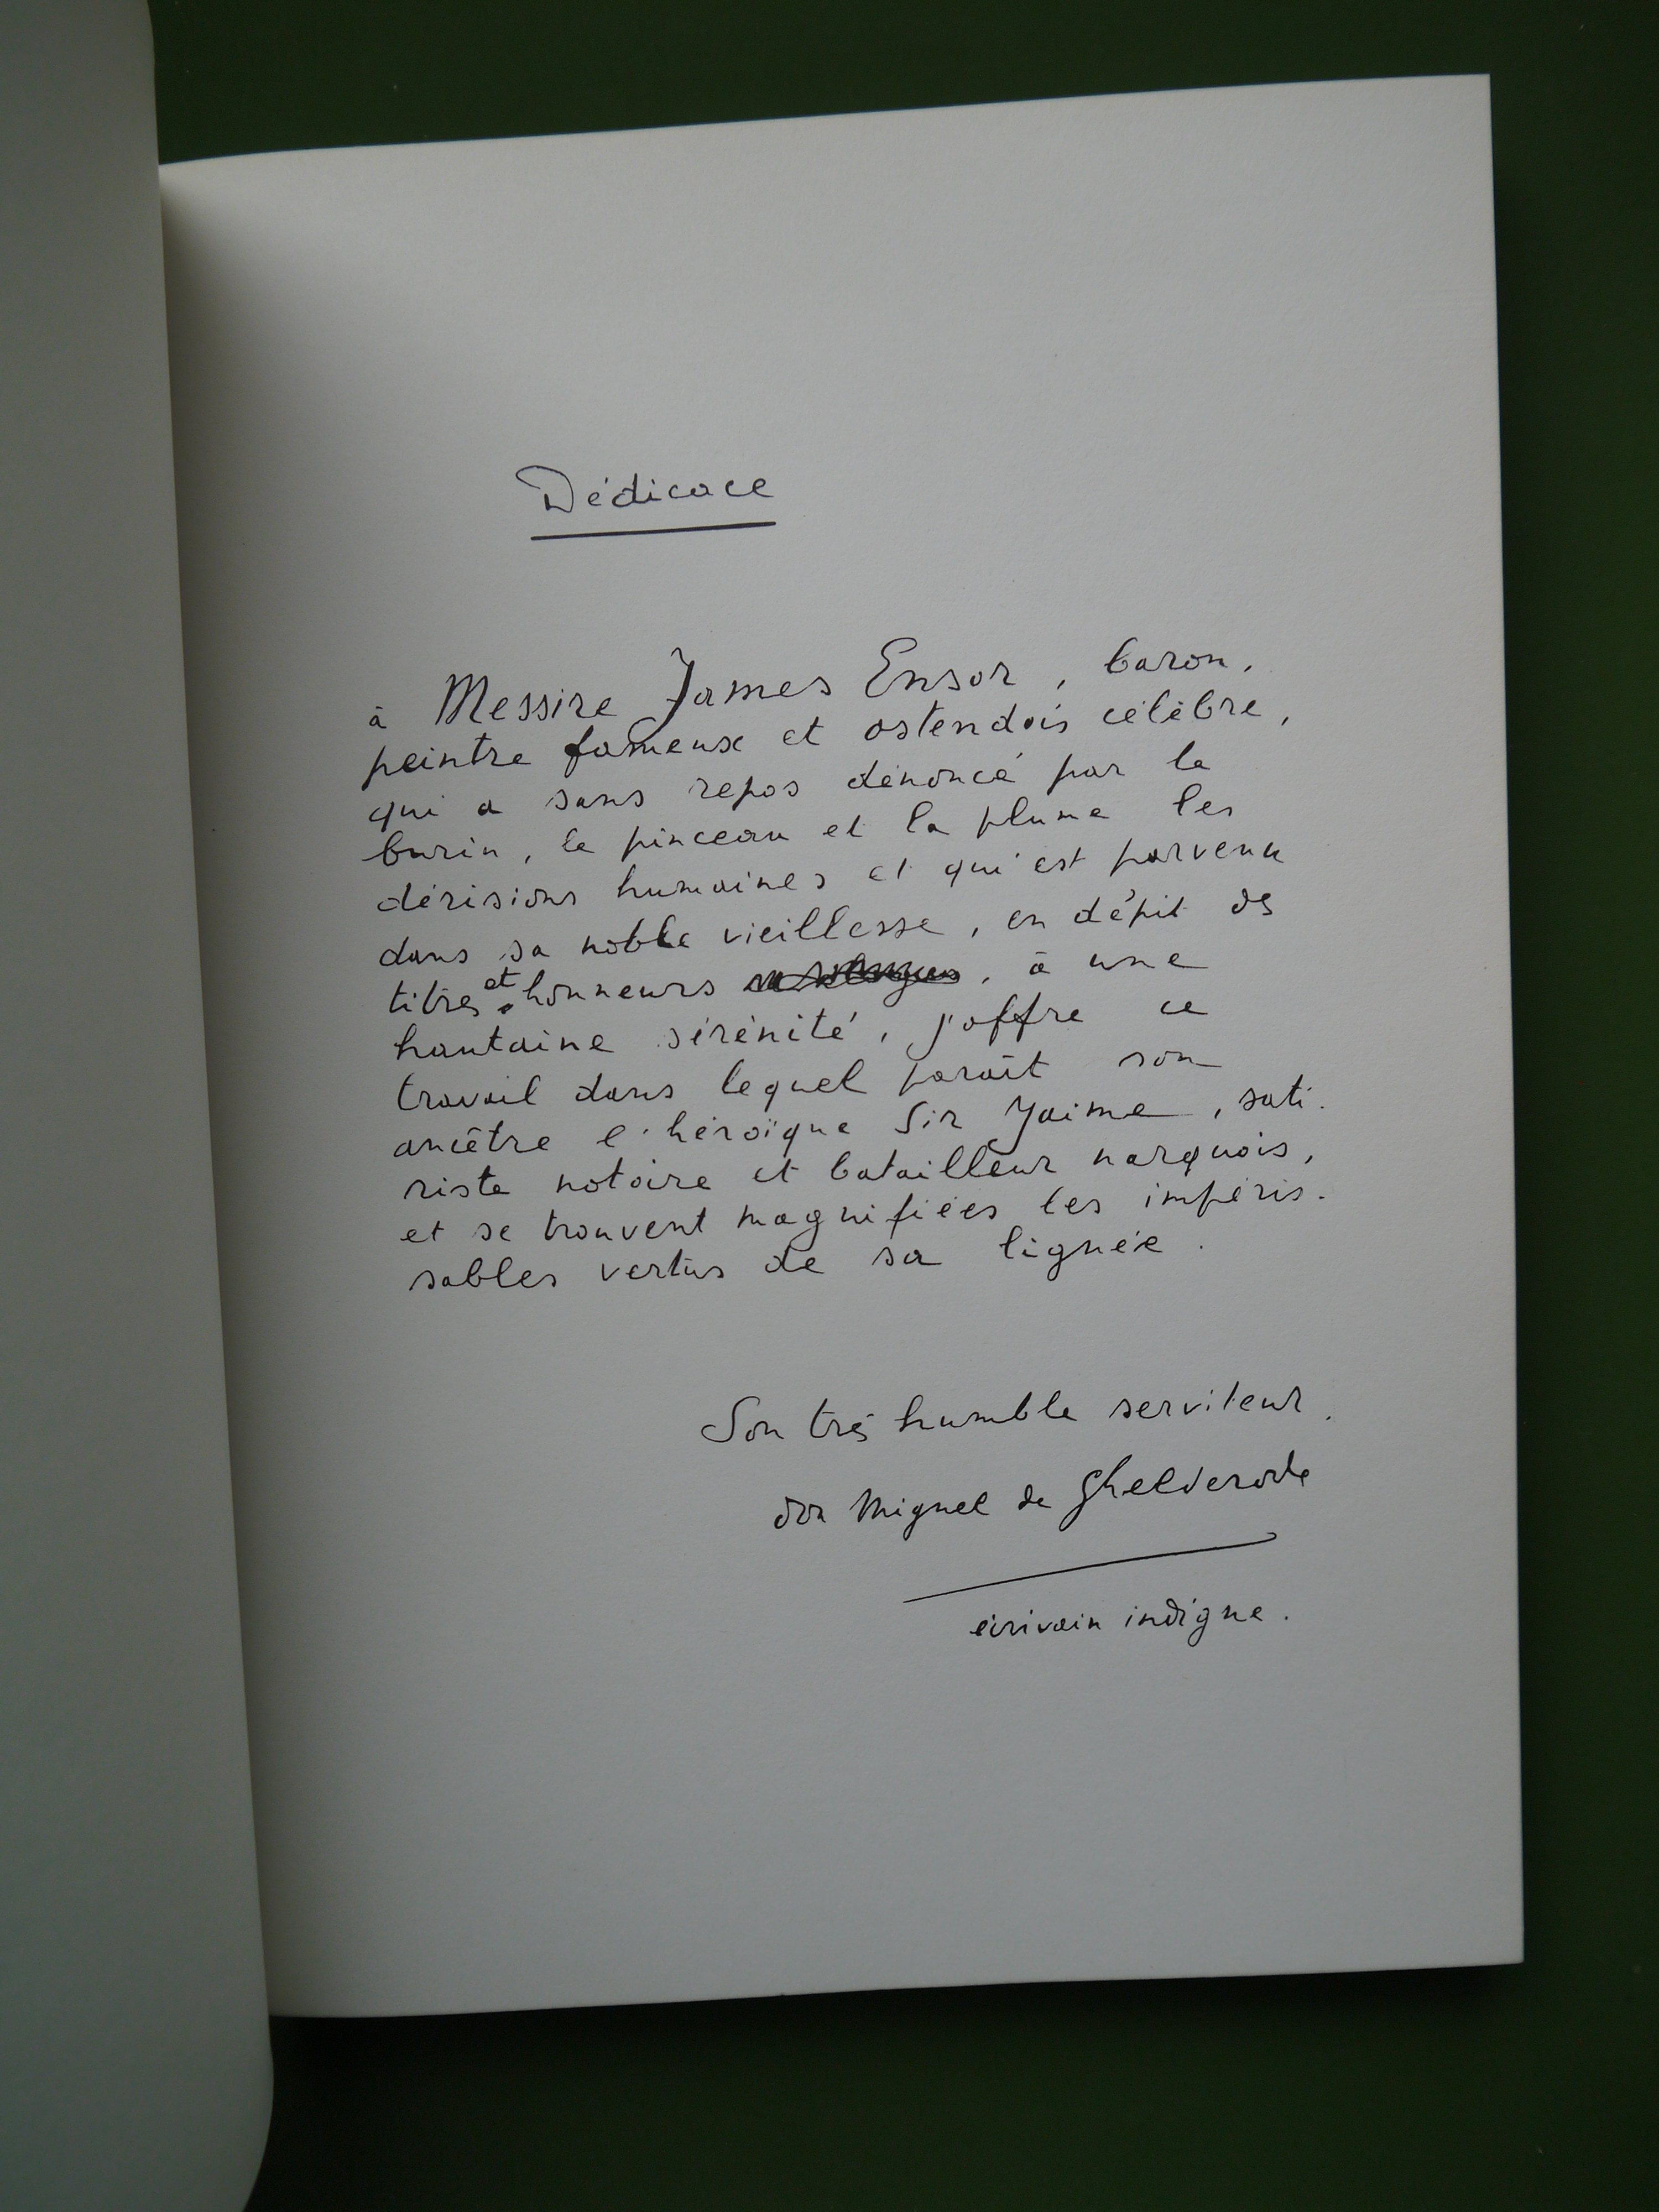 Dédicace
à Messire James Ensor, baron,
peintre fameux et ostendais célèbre,
qui a sans repos dénoncé par le
burin, le pinceau et la plume les
dérisions humaines et qui est parvenu
dans sa noble vieillesse, en dépit des
titres et honneurs, à une
hautaine sérénité, j'offre ce
travail dans lequel paraît son
ancêtre l'héroïque Sir Jaime, sati-
riste notoire et batailleur narquois,
et se trouvent magnifiées les impéris-
sables vertus de sa lignée.
Son très humble serviteur.
don Miguel de Ghelderode
écrivain indigne.